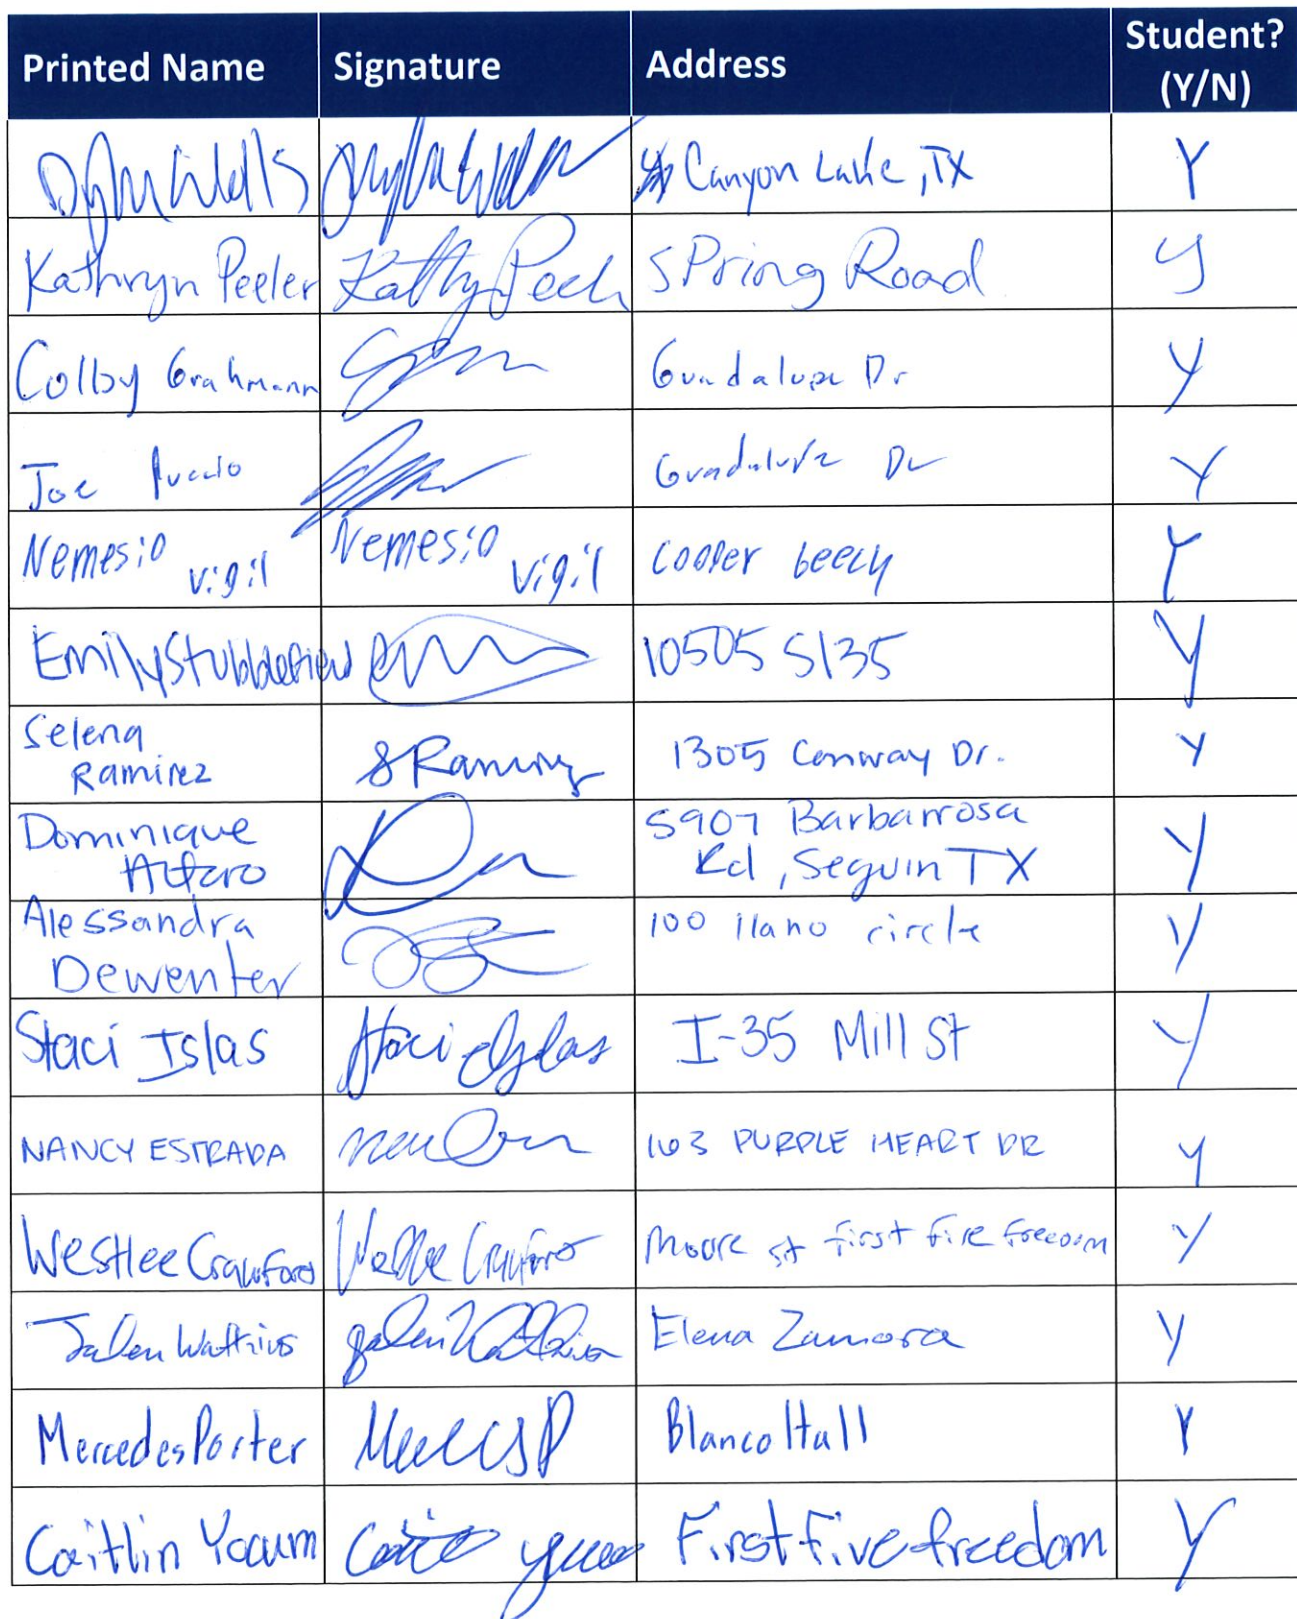 Printed Name Signature Address Student? (Y/N)
Canyon Lake, TX Y
Kathryn Peeler Kathy Peel SPring Road y
Colby Grahmann Guadalupe Dr Y
Joe Guadalupe Dr Y
Nemesio vigil Nemesio vigil Cooper beech Y
Emily Stubblefield 10505 S135 Y
Selena Ramirez S Ramirez 1305 Conway Dr. Y
Dominique Alfaro 5907 Barbarrosa Rd, Seguin TX Y
Alessandra Dewenter 100 llano circle Y
Staci Islas Staci Islas I-35 Mill St Y
NANCY ESTRADA 103 PURPLE HEART DR y
Westlee Crawford Westlee Crawford Moore st first five freedom Y
Jalen Watkins Jalen Watkins Elena Zamora Y
Mercedes Porter Blanco Hall Y
Caitlin Yocum First five freedom Y